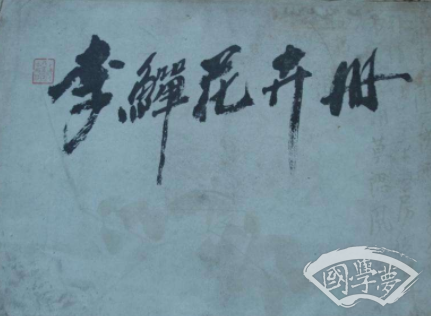 李鱓花卉册
國學夢